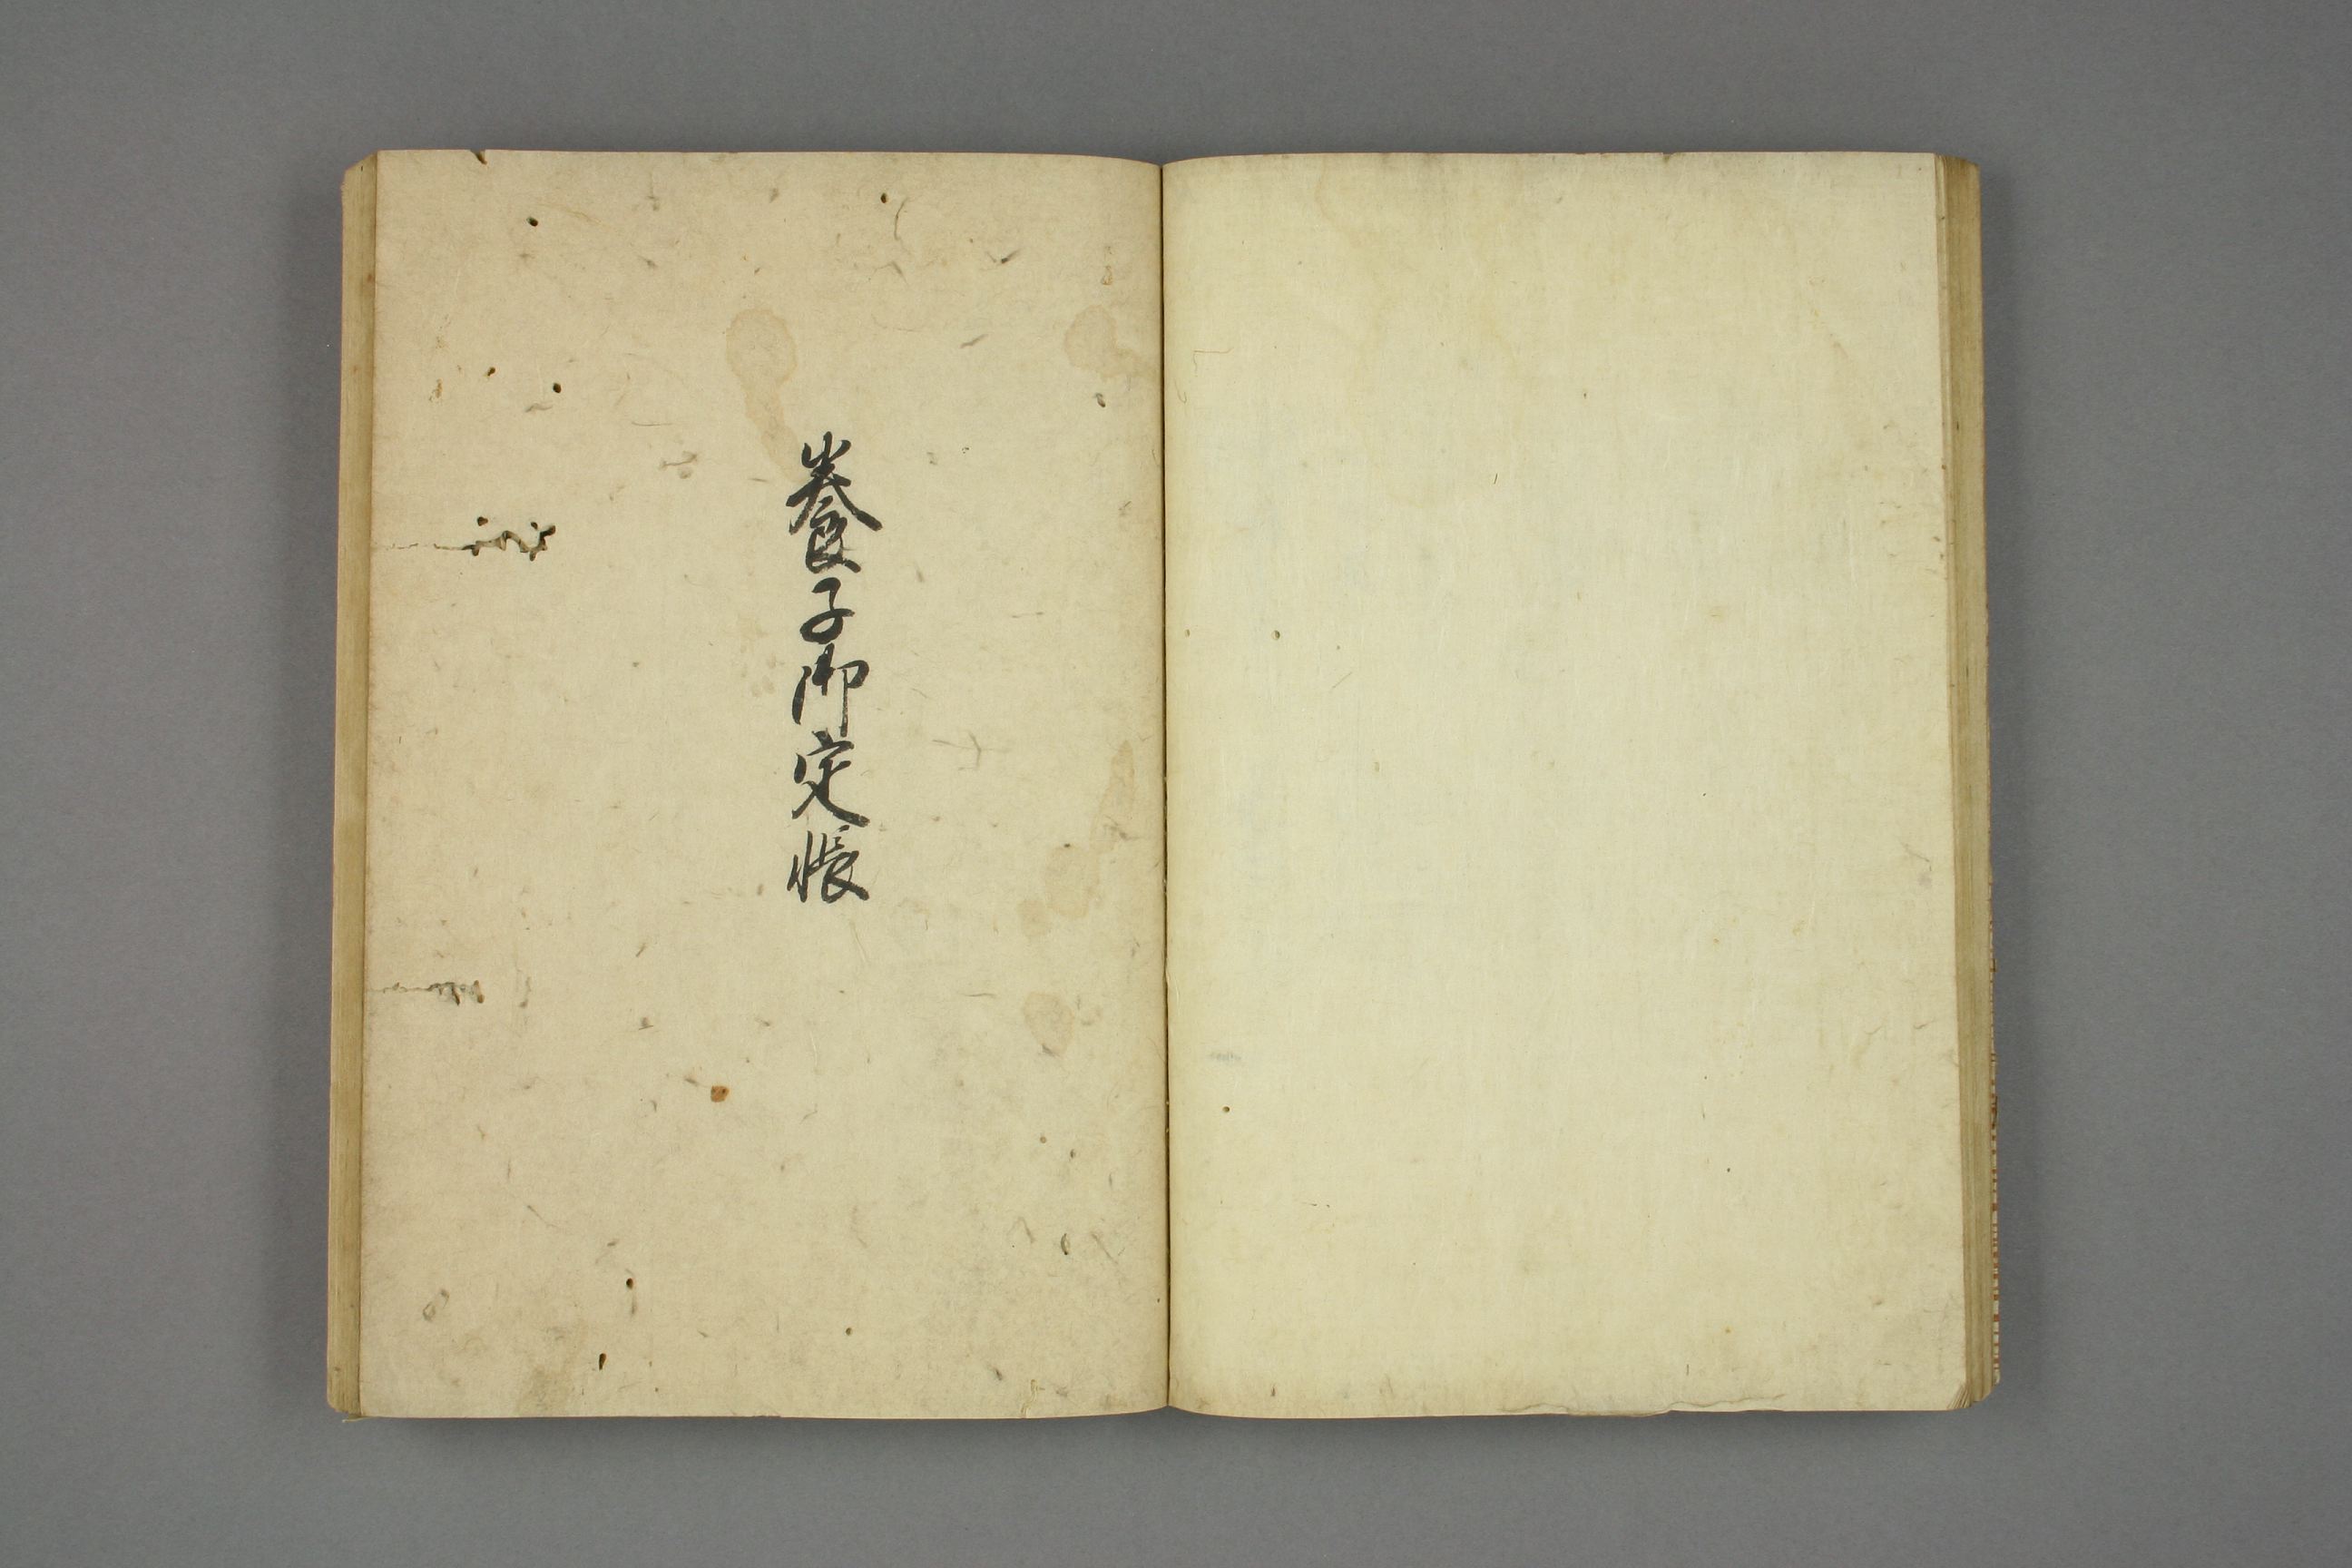 養子御定帳